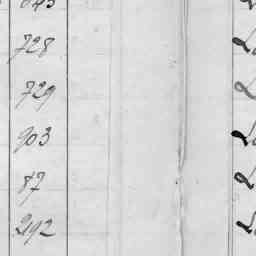 728
729
903
87
292